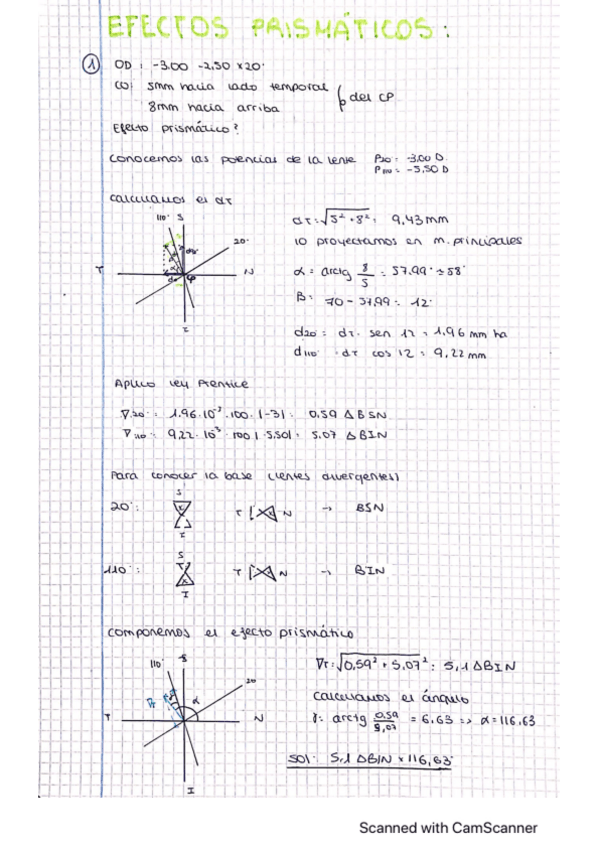 EFECTOS PRISMÁTICOS:
① OD: -3.00 -2.50 x 20°
CO: 5mm hacia lado temporal
8mm hacia arriba } del CP
Efecto prismático?
Conocemos las potencias de la lente P20 = -3.00 D
P110 = -5,50 D
calculamos el dr
dr = √5² + 8² = 9,43 mm
110° S
20°
T N
I
lo proyectamos en m. principales
α = arctg 8/5 = 57.99° ≈ 58°
β = 70 - 57.99 = 12°
d20° = dr · sen 12 = 1.96 mm
d110° = dr cos 12 = 9,22 mm
Aplico ley Prentice
∇20° = 1.96·10⁻³·100·|-3| = 0.59 Δ BSN
∇110° = 9.22·10⁻³·100|-5.50| = 5.07 Δ BIN
Para conocer la base (lentes divergentes)
20°: S I T N → BSN
110°: S I T N → BIN
componemos el efecto prismático
110° S
20
α
T N
I
∇r = √0,59² + 5,07² = 5,1 Δ BIN
calculamos el ángulo
γ = arctg 0,59/5,07 = 6.63 => α = 116.63
sol: 5,1 Δ BIN x 116,63°
Scanned with CamScanner